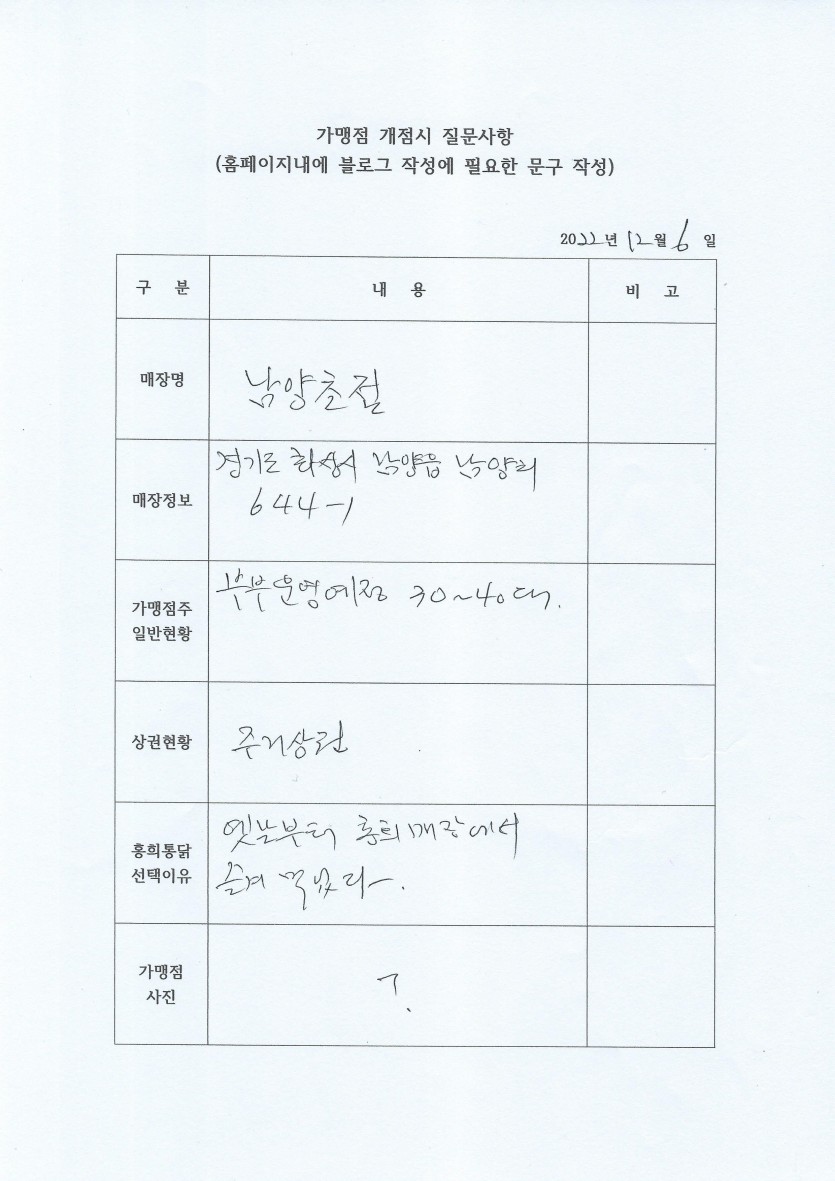 가맹점 개점시 질문사항
(홈페이지내에 블로그 작성에 필요한 문구 작성)
2022년 12월 6일
구 분 내 용 비 고
매장명 남양초점
매장정보 경기도 화성시 남양읍 남양리
644-1
가맹점주
일반현황 부부운영예정 30~40대.
상권현황 주거상권
홍희통닭
선택이유 옛날부터 홍희매장에서
즐겨 먹었다.
가맹점
사진 ?